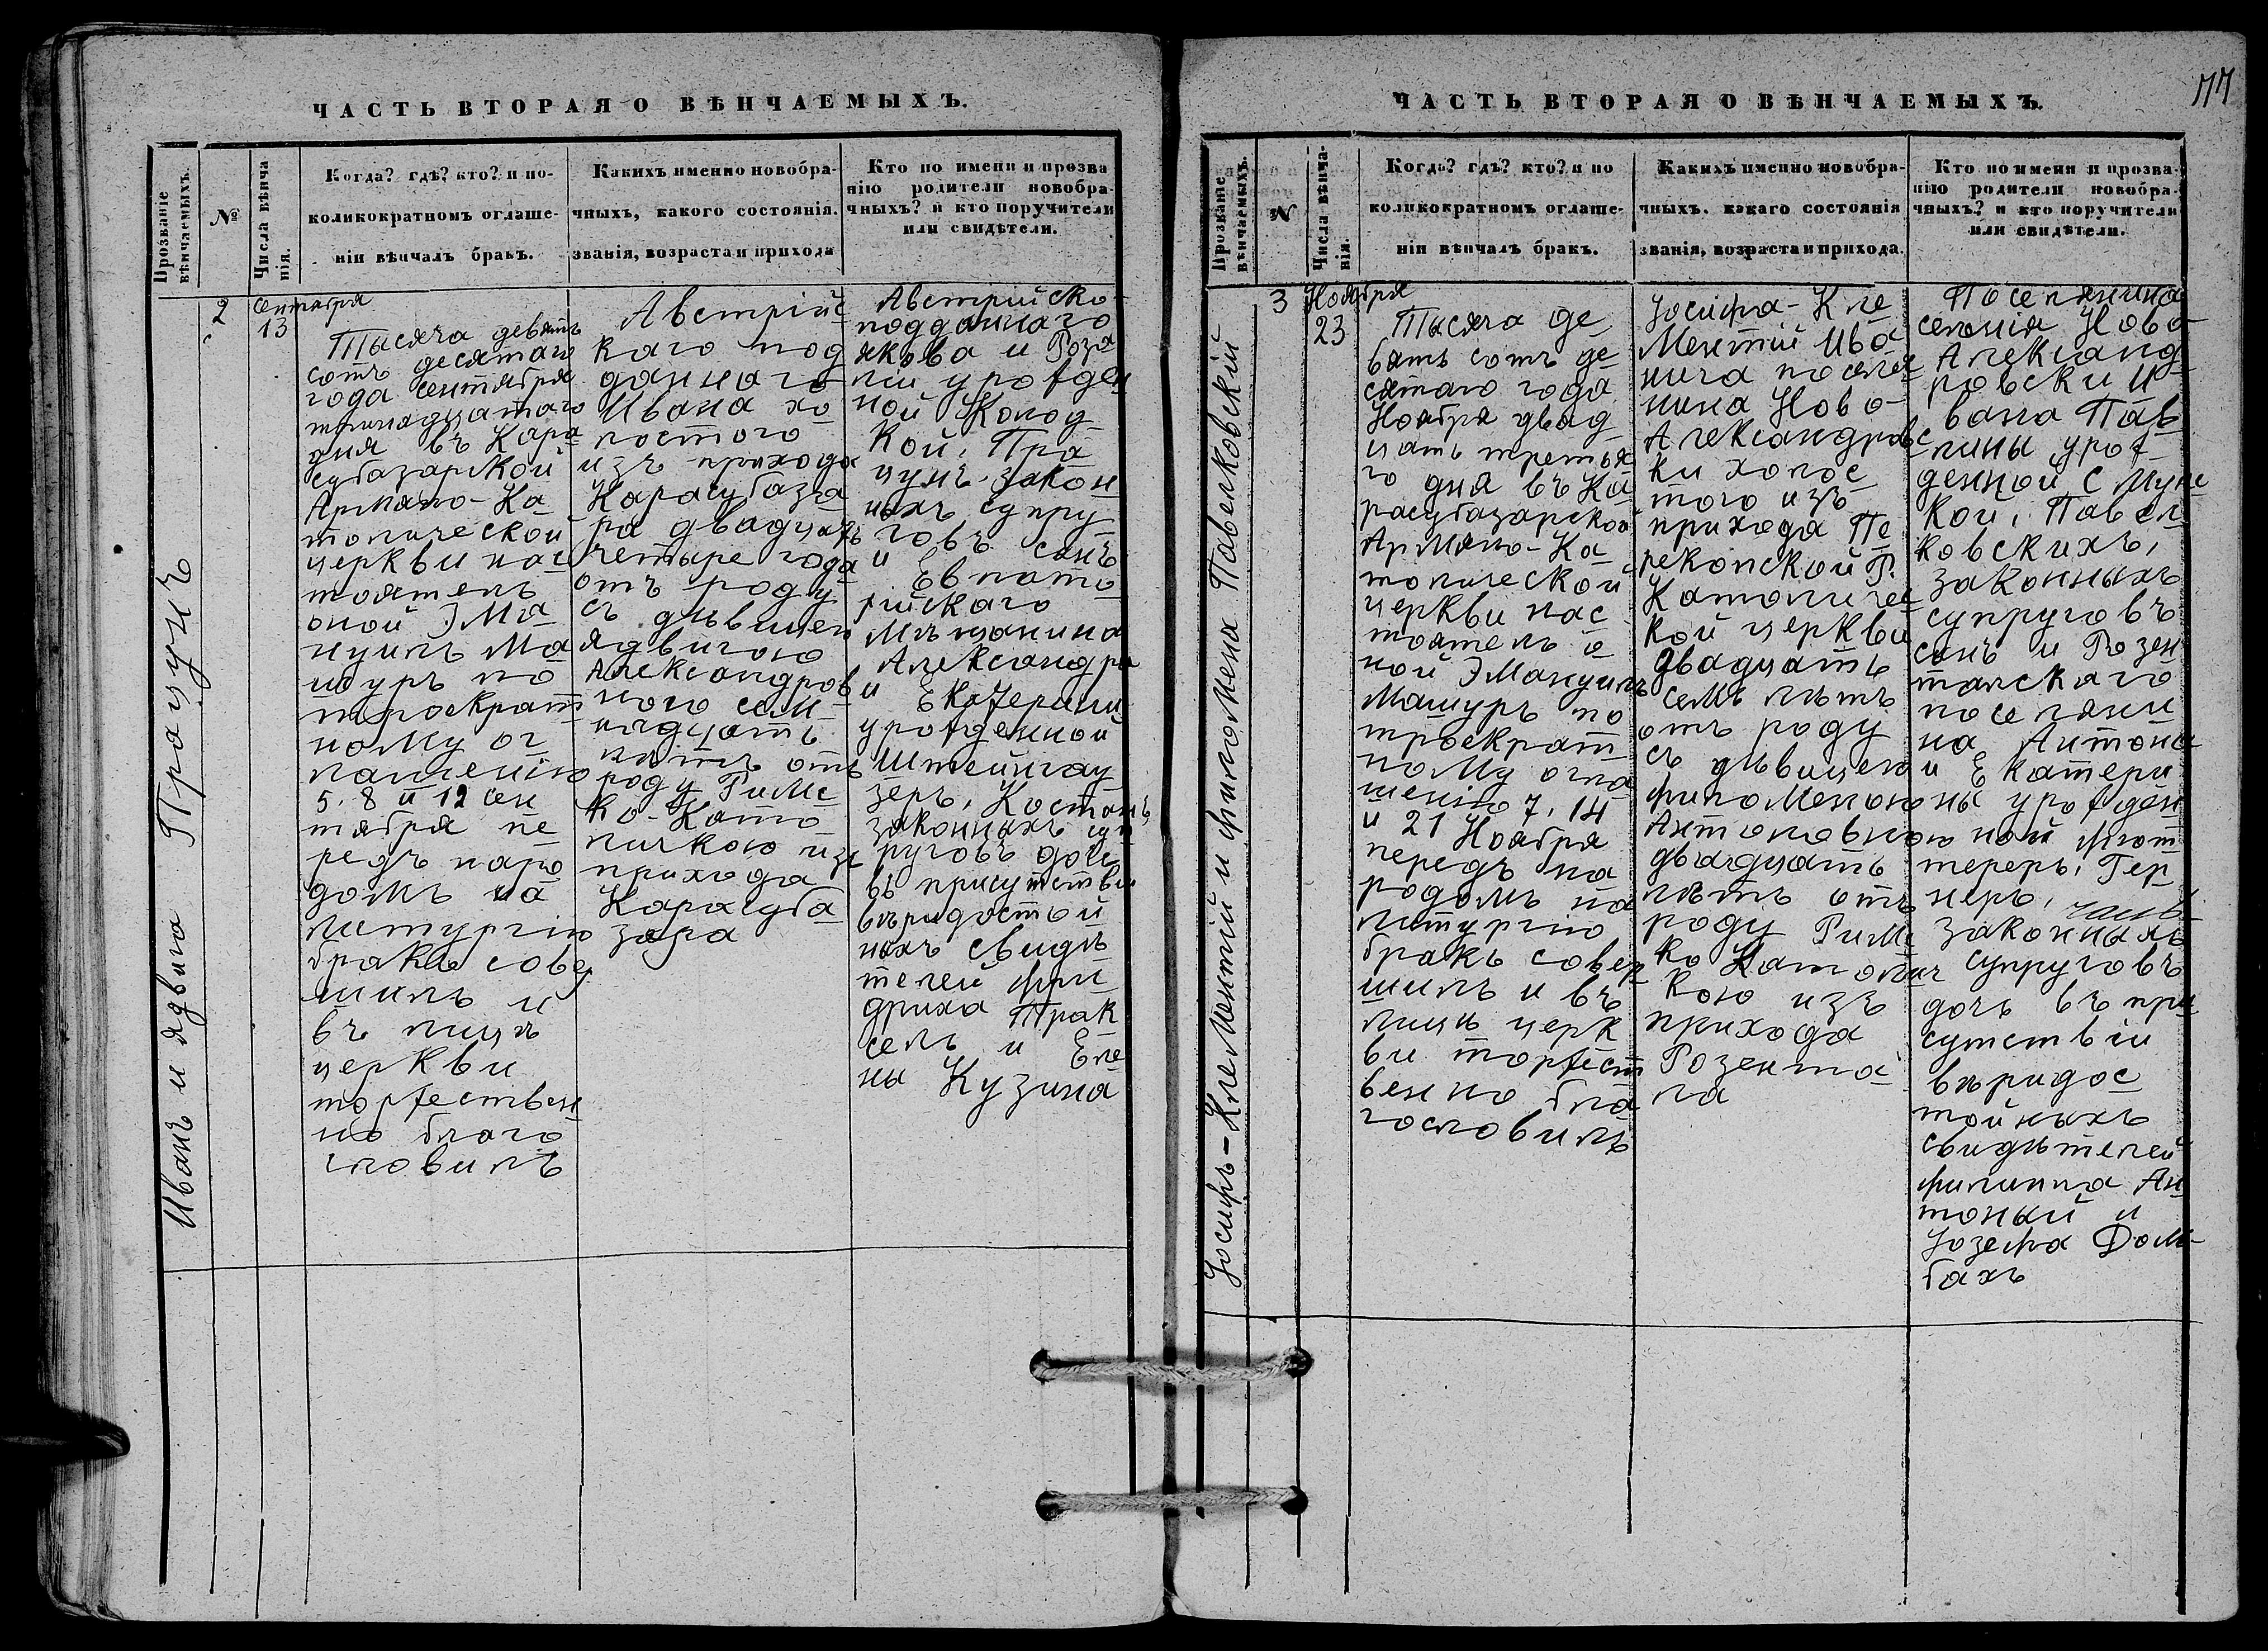 ЧАСТЬ ВТОРАЯ О ВѢНЧАЕМЫХЪ.
Прозваніе
вѣнчаемыхъ.
№
Числа вѣнча
нія.
Когда? гдѣ? кто? и по-
коликократномъ оглаше-
ніи вѣнчалъ бракъ.
Какихъ именно новобра-
чныхъ, какого состоянія.
званія, возраста и прихода
Кто по имени и прозва
нію родители новобра-
чныхъ? и кто поручители
или свидѣтели.
Иванъ и Ядвига Працунъ
2
Сентября
13
Тысяча девять
сотъ десятаго
года Сентября
тринадцатаго
дня въ Кара
субазарской
Армяно-Ка
толической
церкви нас
тоятель
оной Эма
нуилъ Ма
шуръ по
троекрат
ному ог
лашенію
5, 8 и 12 сен
тября пе
редъ наро
домъ на
литургію
бракъ совер
шилъ и
въ лицѣ
церкви
торжествен
но благо
словилъ
Австрійс
каго под
даннаго
Ивана хо
лостого
изъ прихода
Карасубаза
ра двадцать
четыре года
отъ роду
съ дѣвицею
Ядвигою
Александров
ного сем
надцать
лѣтъ отъ
роду Римс
ко-Като
личкою изъ
прихода
Карасуба
зара
Австрійско-
подданнаго
Якова и Роза
ліи урожден
ной Колод
кой, Пра
цунъ-закон
ныхъ супру
говъ сынъ
и Евпато
рійскаго
Мѣщанина
Александра
и Екатерины
урожденной
Штейнгау
зеръ, Костань,
законныхъ суп
руговъ дочь
въ присутствіи
вѣридостой
ныхъ свидѣ
телей Фри
дриха Трак
сель и Еле
ны Кузина
77
ЧАСТЬ ВТОРАЯ О ВѢНЧАЕМЫХЪ.
Прозваніе
вѣнчаемыхъ.
№
Числа вѣнча-
нія.
Когда? гдѣ? кто? и по
коликократномъ оглаше-
ніи вѣнчалъ бракъ.
Какихъ именно новобра-
чныхъ. какаго состоянія
званія, возраста и прихода.
Кто по имени и прозва-
нію родители новобра-
чныхъ? и кто поручители
или свидѣтели.
Іосифъ-Клементій и Филомена Павелковскій
3
Ноября
23
Тысяча де
вять сотъ де
сятаго года
Ноября двад
цать третья
го дня въ Ка
расубазарской
Армяно-Ка
толической
церкви нас
тоятель о
ной Эмануилъ
Машуръ по
троекрат
ному огла
шенію 7, 14
и 21 Ноября
передъ на
родомъ на
литургію
бракъ совер
шилъ и въ
лицѣ церк
ви торжест
венно бла
гословилъ
Іосифа-Кле
ментій Ива
нича поселя
нина Ново-
Александровс
ки холос
того изъ
прихода Пе
рекопской Р.
Католичес
кой церкви
двадцать
семь лѣтъ
отъ роду
съ дѣвицею
Филоменою
Антоновною
двадцать
лѣтъ отъ
роду Римс
ко Католич
кою изъ
прихода
Розента
ла
Поселянина
селенія Ново-
Александ
ровски И
вана Пав
лины урож
денной Смуль
кой, Павел
ковскихъ,
законныхъ
супруговъ
сынъ и Розен
тальскаго
поселяни
на Антона
и Екатери
ны урожден
ной
тереръ, Гер
неръ,
законныхъ
супруговъ
дочь въ при
сутствіи
вѣридос
тойныхъ
свидѣтелей
Филиппа Ан
тоный и
Іозефа Дом-
бахъ